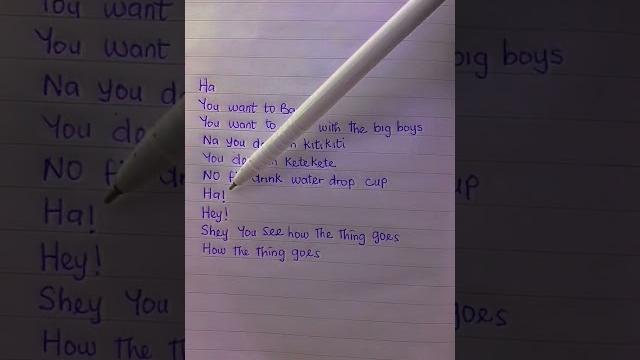 Ha
You want to Ba
You want to with the big boys
Na you do kitikiti
You do Ketekete
NO drink water drop cup
Ha!
Hey!
Shey You See how The Thing goes
How The Thing goes